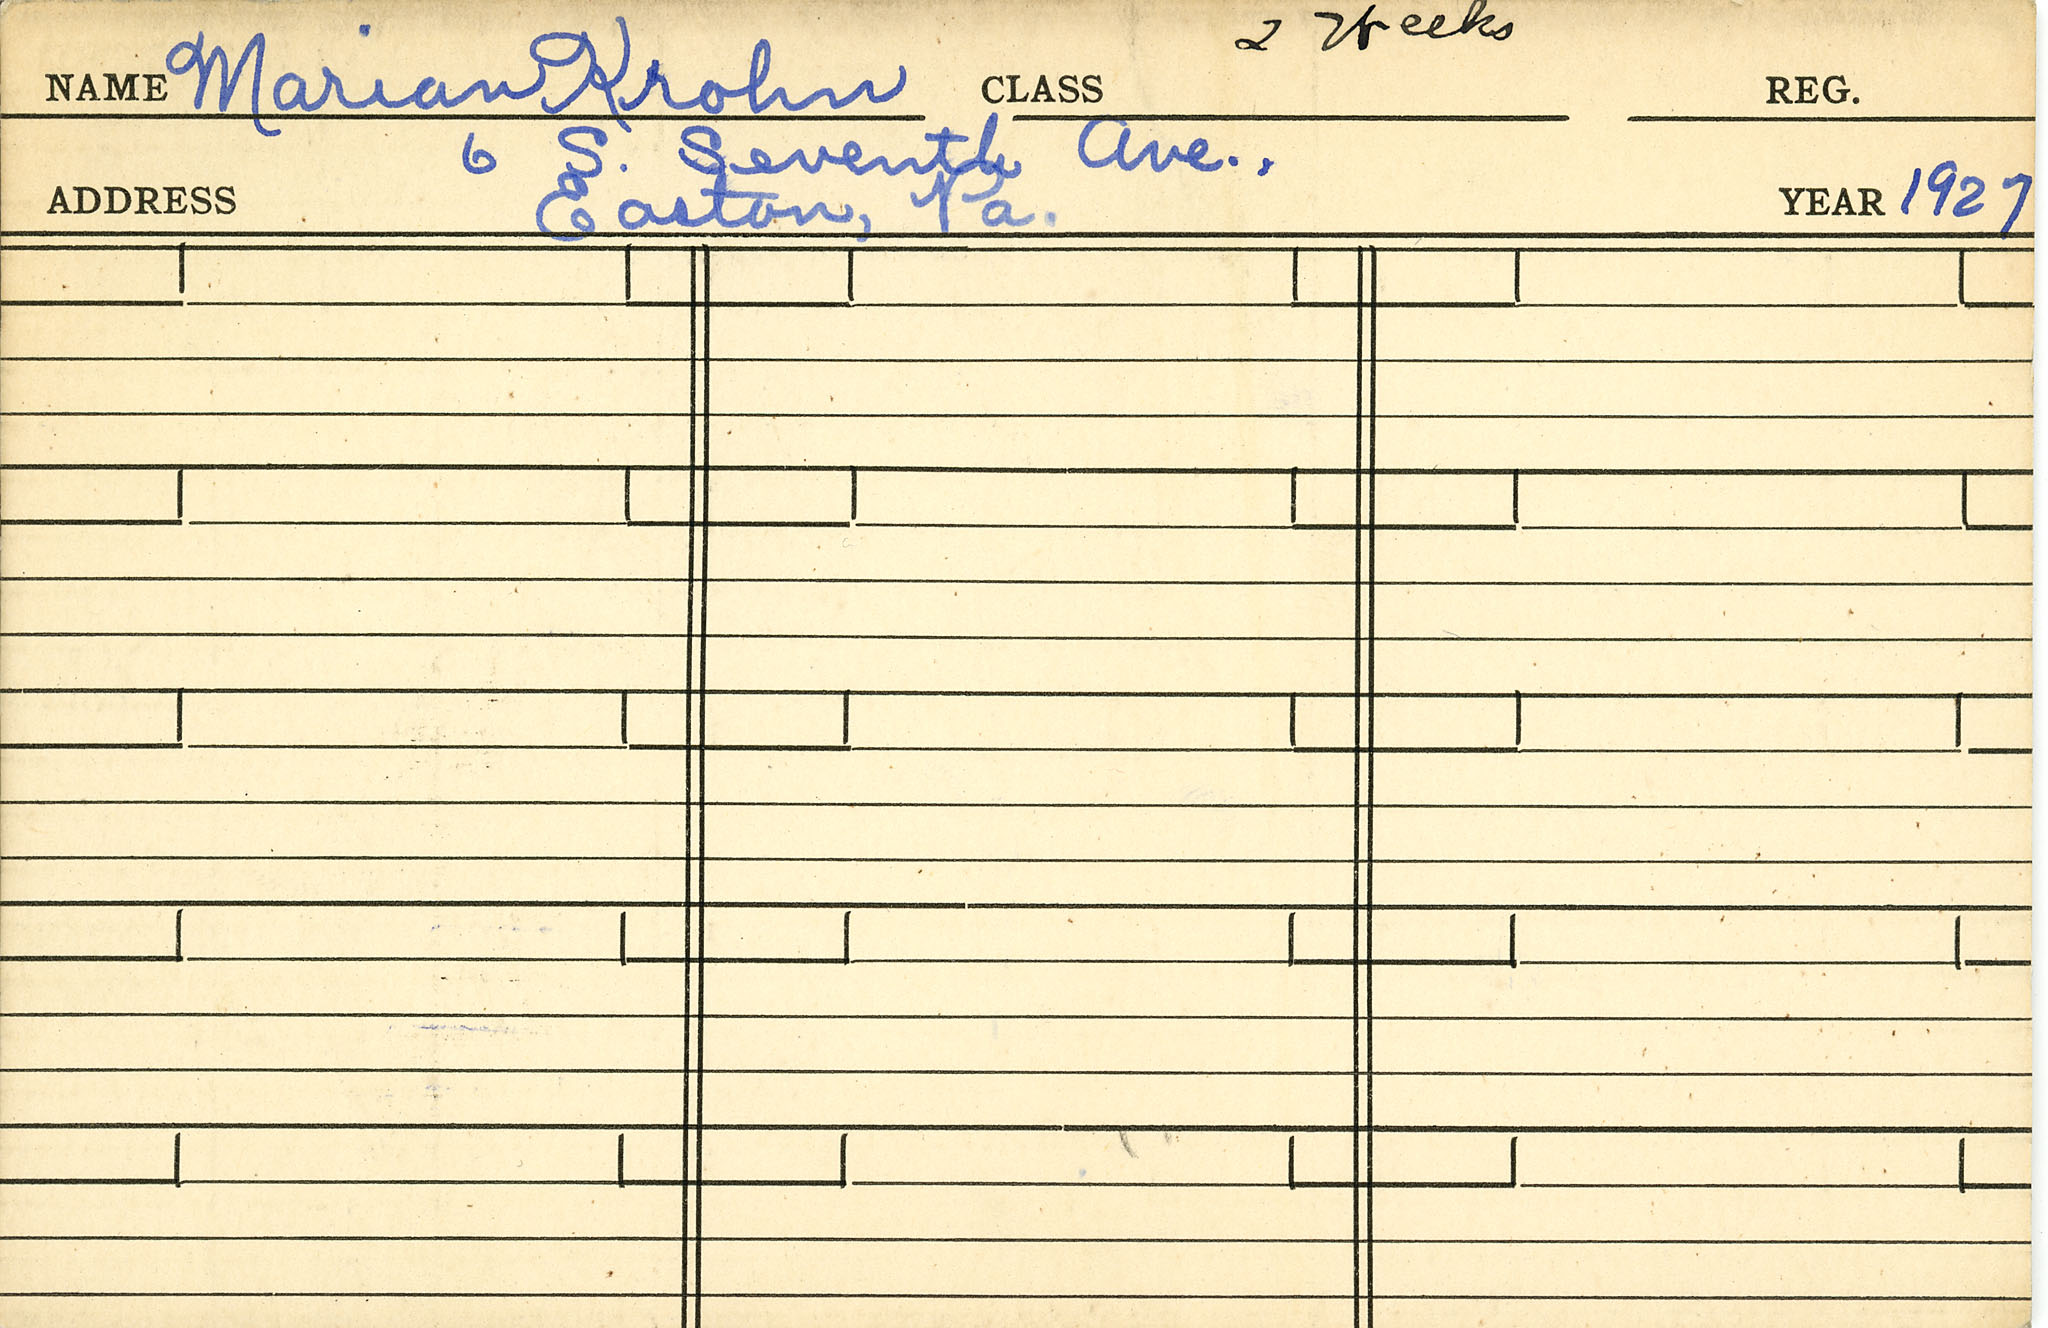 2 Weeks
NAME Marian Krohn CLASS REG.
6 S. Seventh Ave.,
ADDRESS Easton, Pa. YEAR 1927